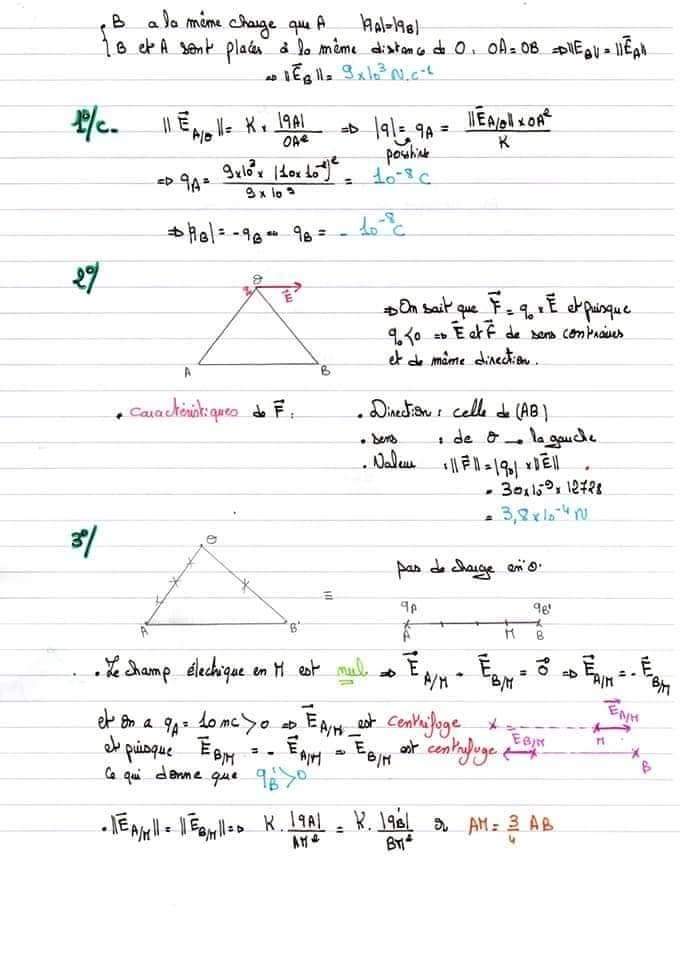 B a la même charge que A |qA|=|qB|
B et A sont placés à la même distance de O, OA = OB ⇒ ||E⃗B|| = ||E⃗A||
⇒ ||E⃗B|| = 9×10³ N.c⁻¹
1°/c. ||E⃗A/O|| = K × |qA|/OA² ⇒ |q| = qA = ||E⃗A/O|| × OA²/K
positive
⇒ qA = 9×10³ × (10×10⁻²)²/9×10⁹ = 10⁻⁸ C
⇒ |qB| = -qB qB = - 10⁻⁸ C
2°/
O
E⃗
A B
⇒ On sait que F⃗ = q₀ × E⃗ et puisque
q₀<0 ⇒ E⃗ et F⃗ de sens contraires
et de même direction.
• Caractéristiques de F⃗ :
• Direction : celle de (AB)
• sens : de O → la gauche
• Valeur : ||F⃗|| = |q₀| × ||E⃗||
= 30×10⁻⁹ × 12728
= 3,8×10⁻⁴ N
3°/
O
A B'
≡
pas de charge en "O".
qA qB'
A M B
• Le champ électrique en M est nul ⇒ E⃗A/M + E⃗B/M = 0⃗ ⇒ E⃗A/M = - E⃗B/M
et on a qA = 10 nC > 0 ⇒ E⃗A/M est centrifuge
et puisque E⃗B/M = - E⃗A/M ⇒ E⃗B/M est centrifuge
Ce qui donne que q'B > 0
E⃗A/M
M
E⃗B/M
B
• ||E⃗A/M|| = ||E⃗B/M|| ⇒ K. |qA|/AM² = K. |q'B|/BM² or AM = 3/4 AB